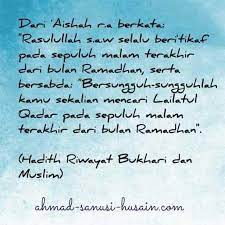 Dari 'Aishah r.a berkata:
"Rasulullah s.a.w selalu beritikaf
pada sepuluh malam terakhir
dari bulan Ramadhan, serta
bersabda: "Bersungguh-sungguhlah
kamu sekalian mencari Lailatul
Qadar pada sepuluh malam
terakhir dari bulan Ramadhan".
(Hadith Riwayat Bukhari dan
Muslim)
ahmad-sanusi-husain.com